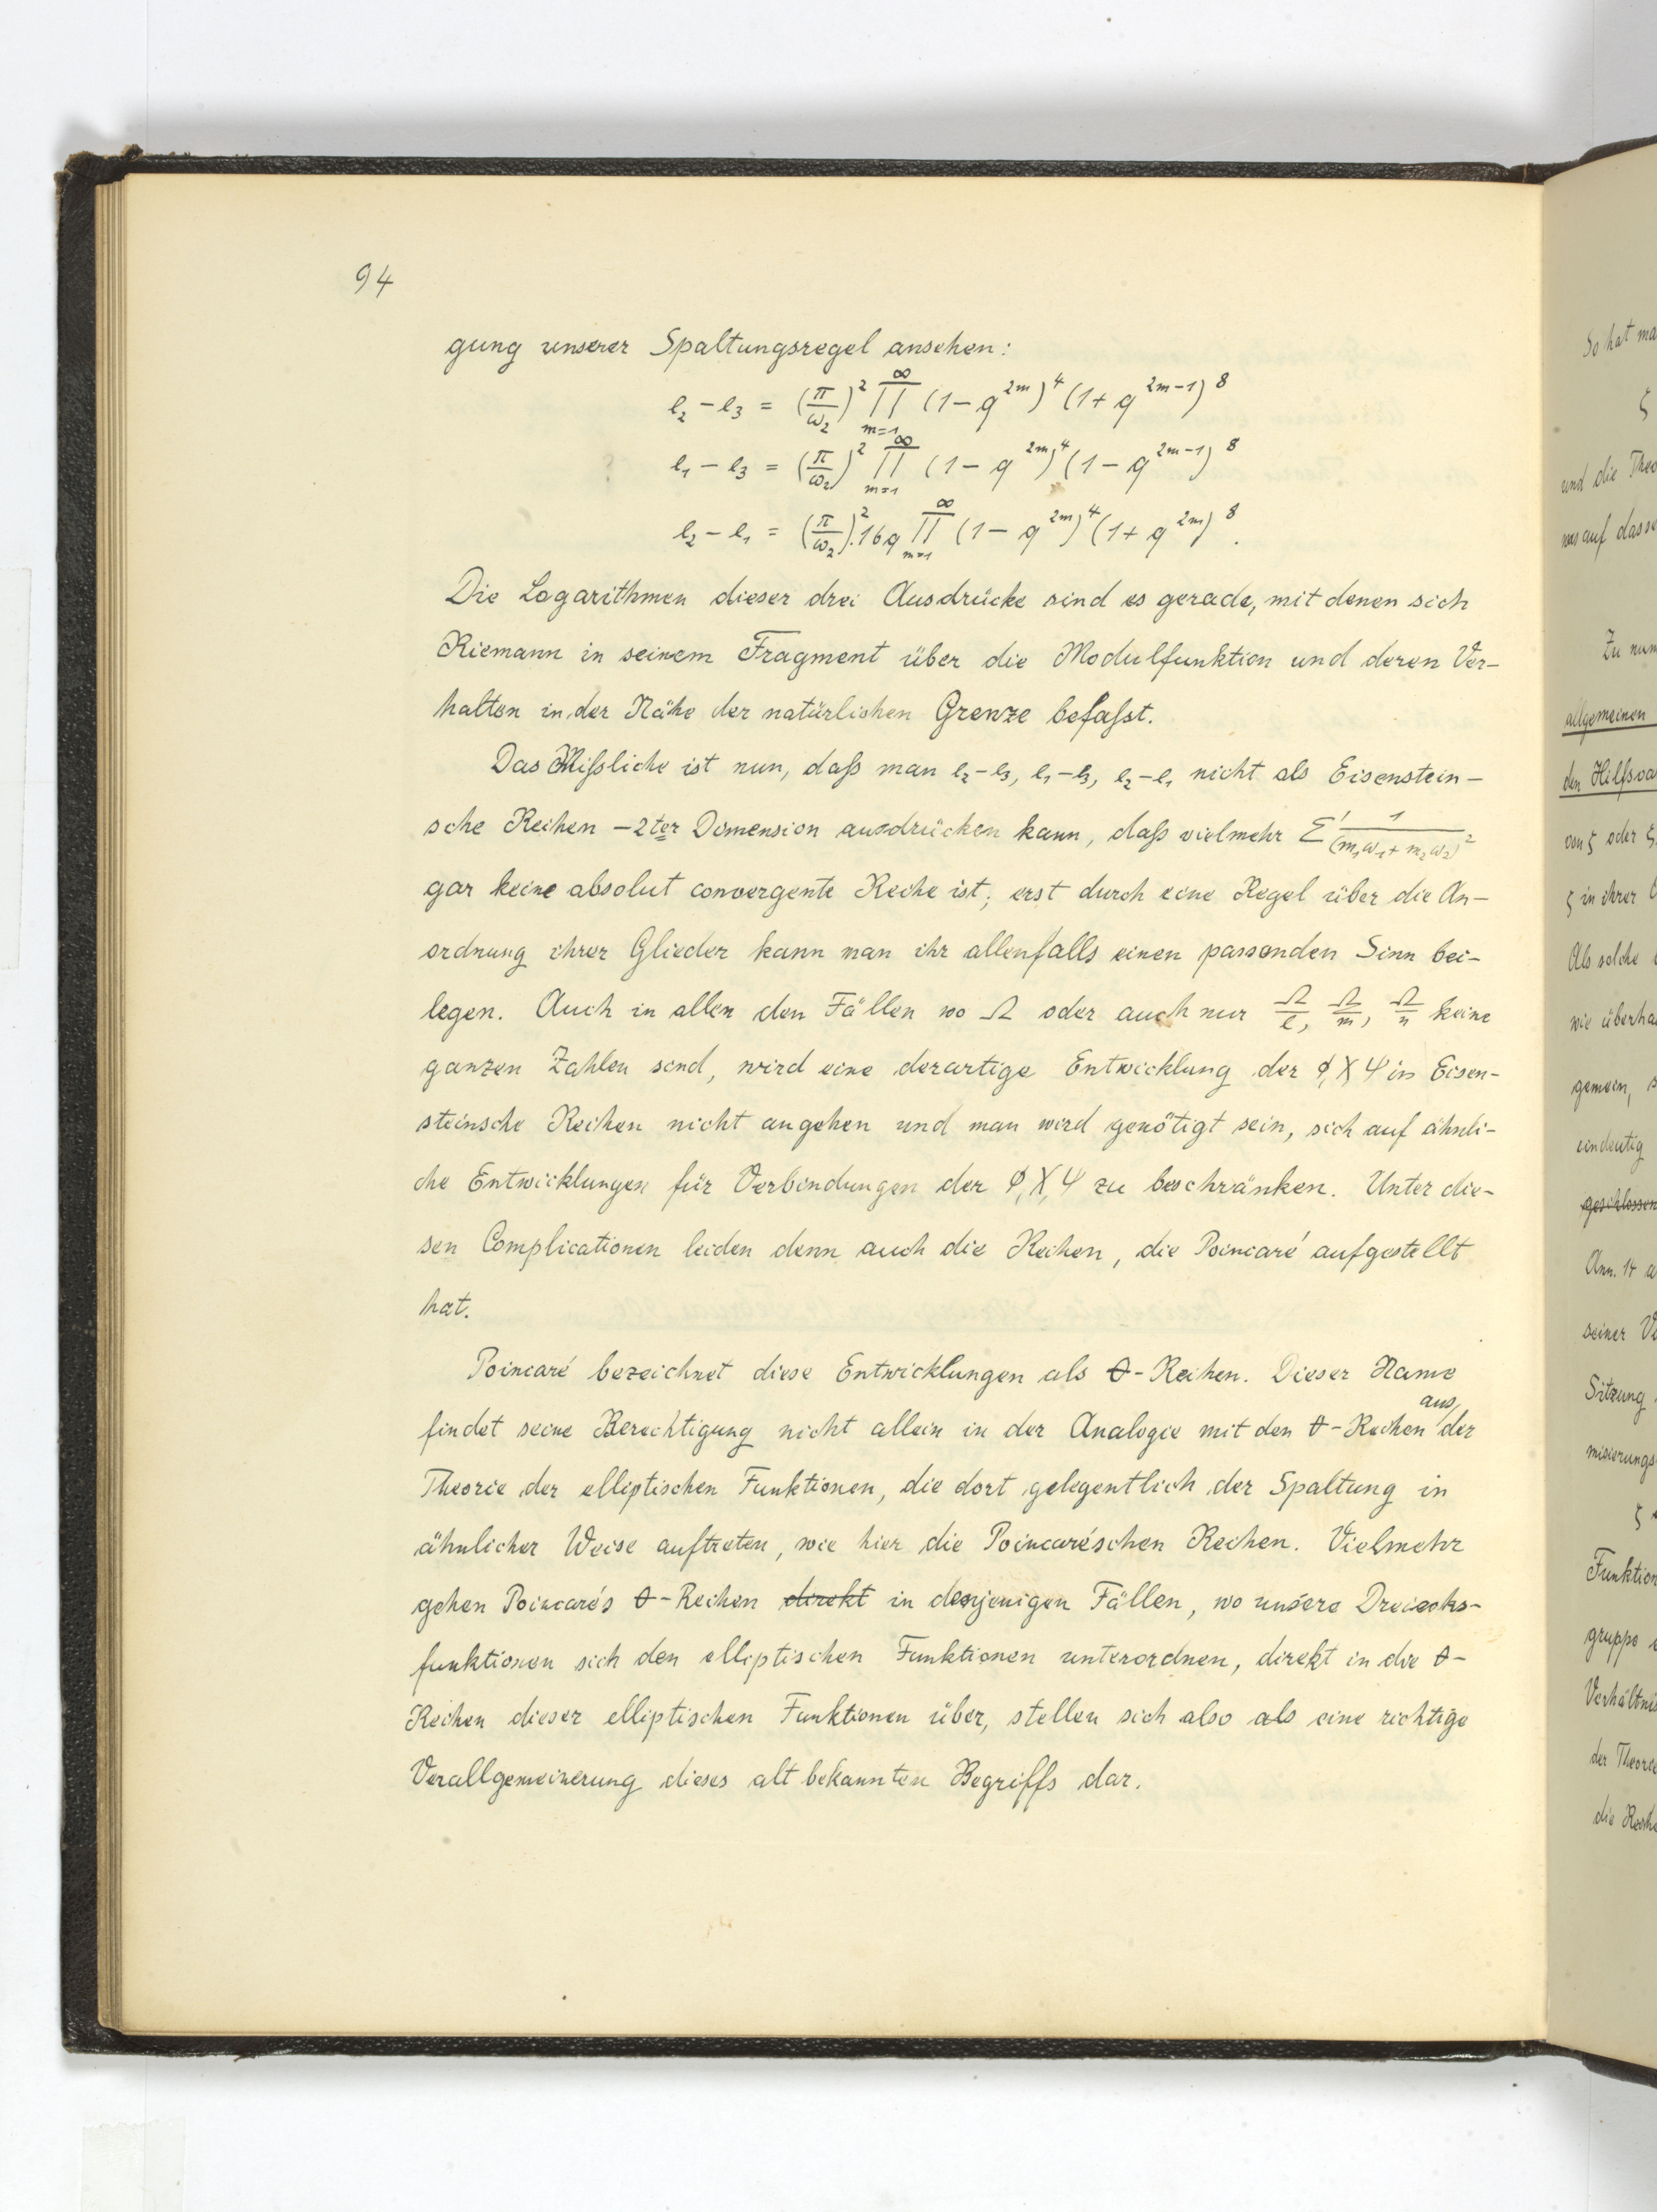 94
gung unserer Spaltungsregel ansehen:
e₂ − e₃ = (π/ω₂)² ∏_{m=1}^∞ (1 − q^{2m})⁴ (1 + q^{2m−1})⁸
e₁ − e₃ = (π/ω₂)² ∏_{m=1}^∞ (1 − q^{2m})⁴ (1 − q^{2m−1})⁸
e₂ − e₁ = (π/ω₂)². 16q ∏_{m=1}^∞ (1 − q^{2m})⁴ (1 + q^{2m})⁸.
Die Logarithmen dieser drei Ausdrücke sind es gerade, mit denen sich
Riemann in seinem Fragment über die Modulfunktion und deren Ver-
halten in der Nähe der natürlichen Grenze befaßt.
Das Mißliche ist nun, daß man e₂−e₃, e₁−e₃, e₂−e₁ nicht als Eisenstein-
sche Reihen −2ter Dimension ausdrücken kann, daß vielmehr Σ′ 1/(m₁ω₁+m₂ω₂)²
gar keine absolut convergente Reihe ist; erst durch eine Regel über die An-
ordnung ihrer Glieder kann man ihr allenfalls einen passenden Sinn bei-
legen. Auch in allen den Fällen wo Ω oder auch nur Ω/l, Ω/m, Ω/n keine
ganzen Zahlen sind, wird eine derartige Entwicklung der φ, χ ψ in Eisen-
steinsche Reihen nicht angehen und man wird genötigt sein, sich auf ähnli-
che Entwicklungen für Verbindungen der φ, χ, ψ zu beschränken. Unter die-
sen Complicationen leiden denn auch die Reihen, die Poincaré aufgestellt
hat.
Poincaré bezeichnet diese Entwicklungen als ϑ-Reihen. Dieser Name
findet seine Berechtigung nicht allein in der Analogie mit den ϑ-Reihen aus der
Theorie der elliptischen Funktionen, die dort gelegentlich der Spaltung in
ähnlicher Weise auftreten, wie hier die Poincaréschen Reihen. Vielmehr
gehen Poincarés ϑ-Reihen direkt in denjenigen Fällen, wo unsere Dreiecks-
funktionen sich den elliptischen Funktionen unterordnen, direkt in die ϑ-
Reihen dieser elliptischen Funktionen über, stellen sich also als eine richtige
Verallgemeinerung dieses altbekannten Begriffs dar.
So hat ma
ζ
und die Theo
was auf dasse
Zu nun
allgemeinen
den Hilfsva
von ζ oder ζ
ζ in ihrer
Als solche
wie überha
gemein, s
eindeutig
geschlossen
Ann. 14 a
seiner V
Sitzung
misierungs
ζ
Funktion
gruppe
Verhältnis
der Theorie
die Reihe